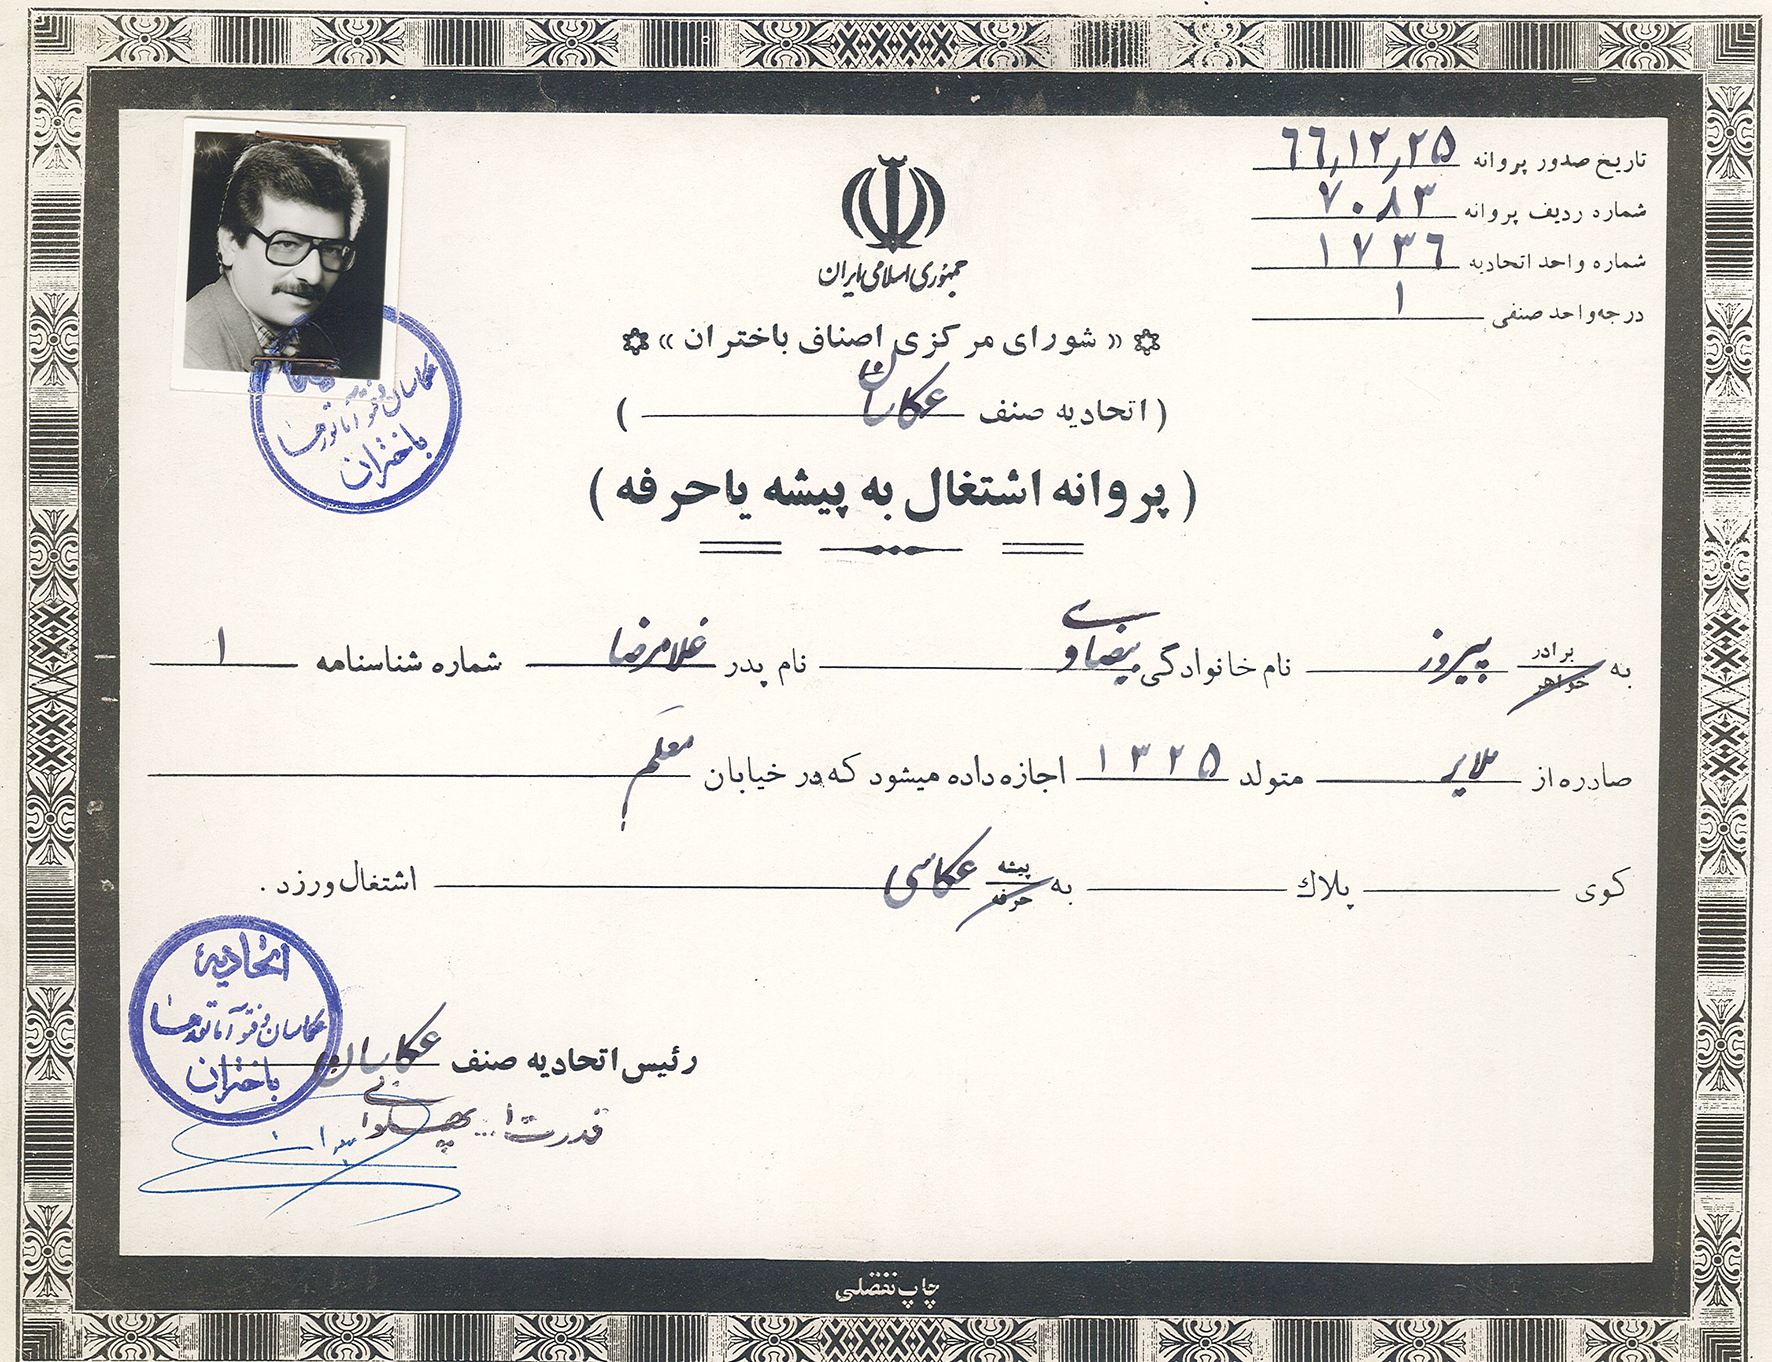 تاریخ صدور پروانه ٦٦,١٢,٢٥
شماره ردیف پروانه ٧٠٨٣
شماره واحد اتحادیه ١٧٣٦
درجه واحد صنفی ١
جمهوری اسلامی ایران
« شورای مرکزی اصناف باختران »
( اتحادیه صنف عکاسان )
عکاسان و فتوآماتورها
باختران
( پروانه اشتغال به پیشه یا حرفه )
به برادر خواهر پیروز نام خانوادگی بیضاوی نام پدر غلامرضا شماره شناسنامه ١
صادره از ملایر متولد ١٣٢٥ اجازه داده میشود که در خیابان معلم
کوی پلاك به پیشه حرفه عکاسی اشتغال ورزد .
اتحادیه
عکاسان و فتوآماتورها
باختران
رئیس اتحادیه صنف عکاسان
قدرت ا... پهلوانی
چاپ تفضلی